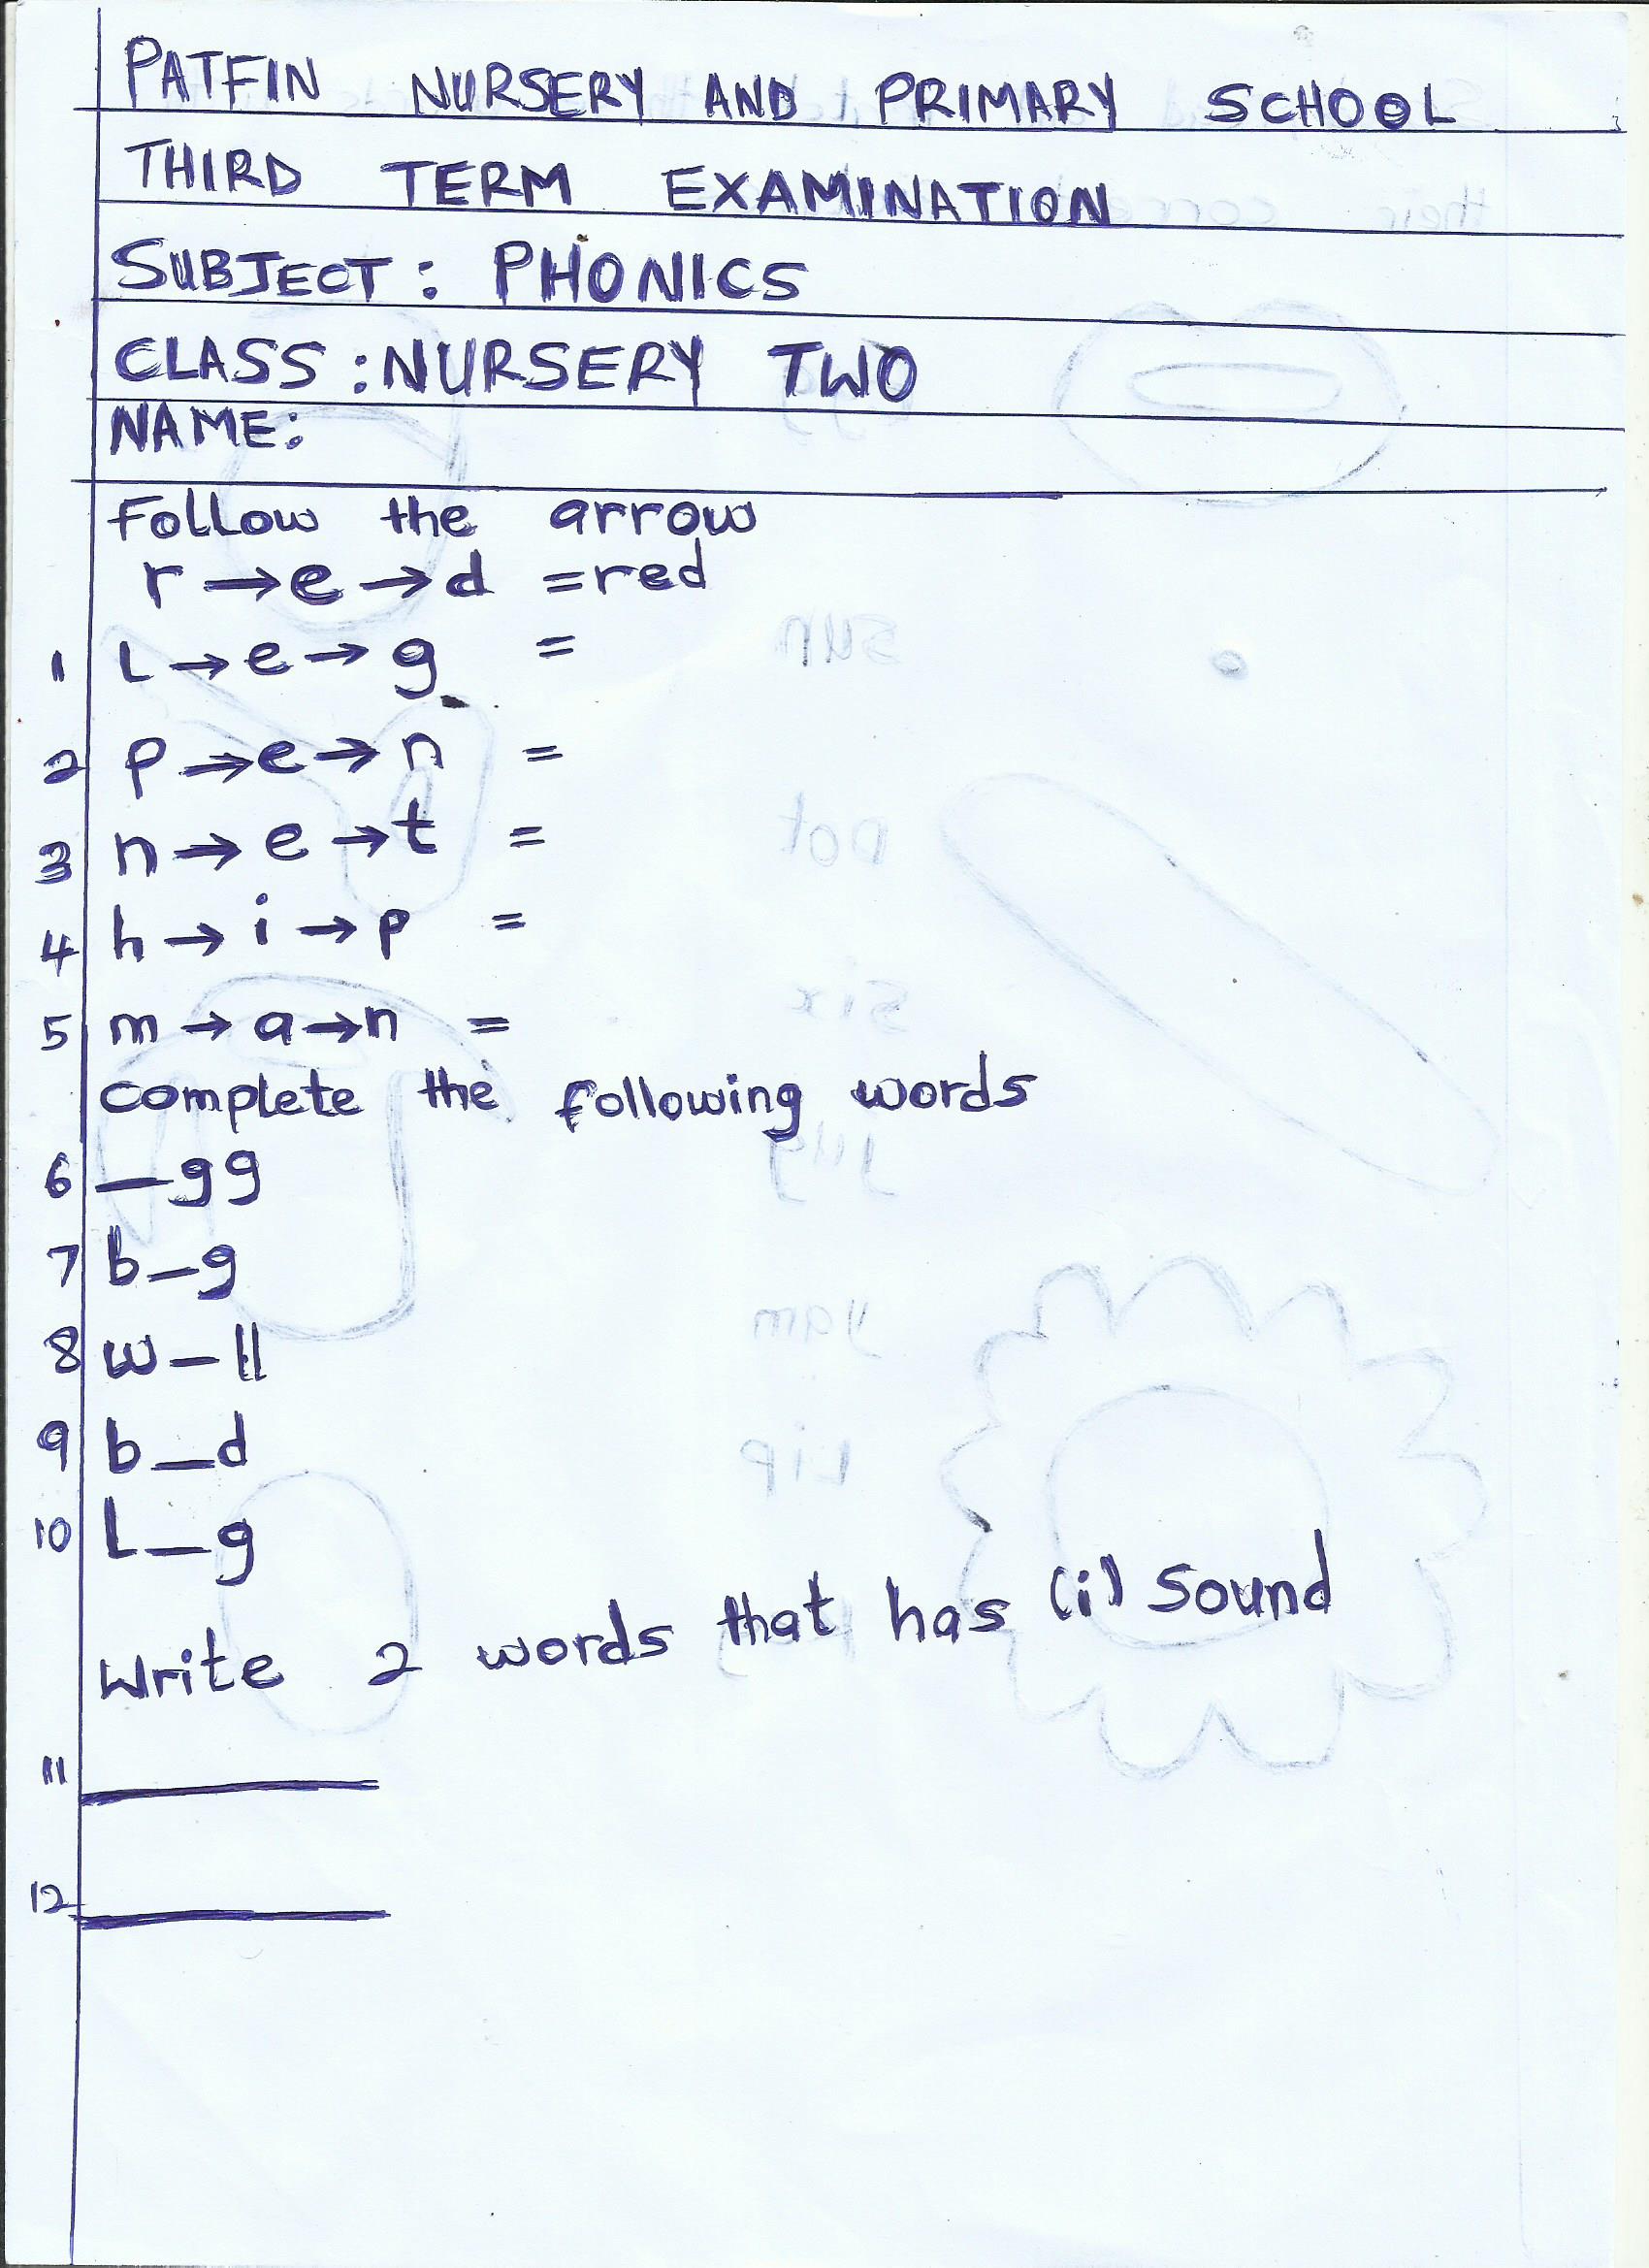 PATFIN NURSERY AND PRIMARY SCHOOL
THIRD TERM EXAMINATION
SUBJECT: PHONICS
CLASS: NURSERY TWO
NAME:
Follow the arrow
r → e → d = red
1 L → e → g =
2 p → e → n =
3 n → e → t =
4 h → i → p =
5 m → a → n =
complete the following words
6 _gg
7 b_g
8 w_ll
9 b_d
10 L_g
write 2 words that has (i) sound
11
12